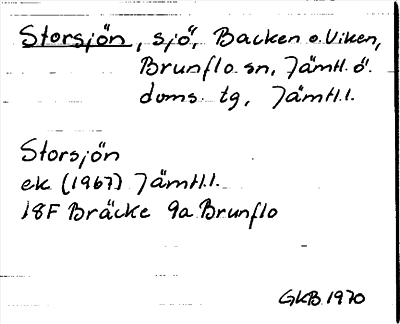 Storsjön, sjö, Backen o. Viken,
Brunflo sn, Jämtl. ö.
doms. tg, Jämtl. l.
Storsjön
ek. (1967) Jämtl. l.
18F Bräcke 9a Brunflo
GKB 1970